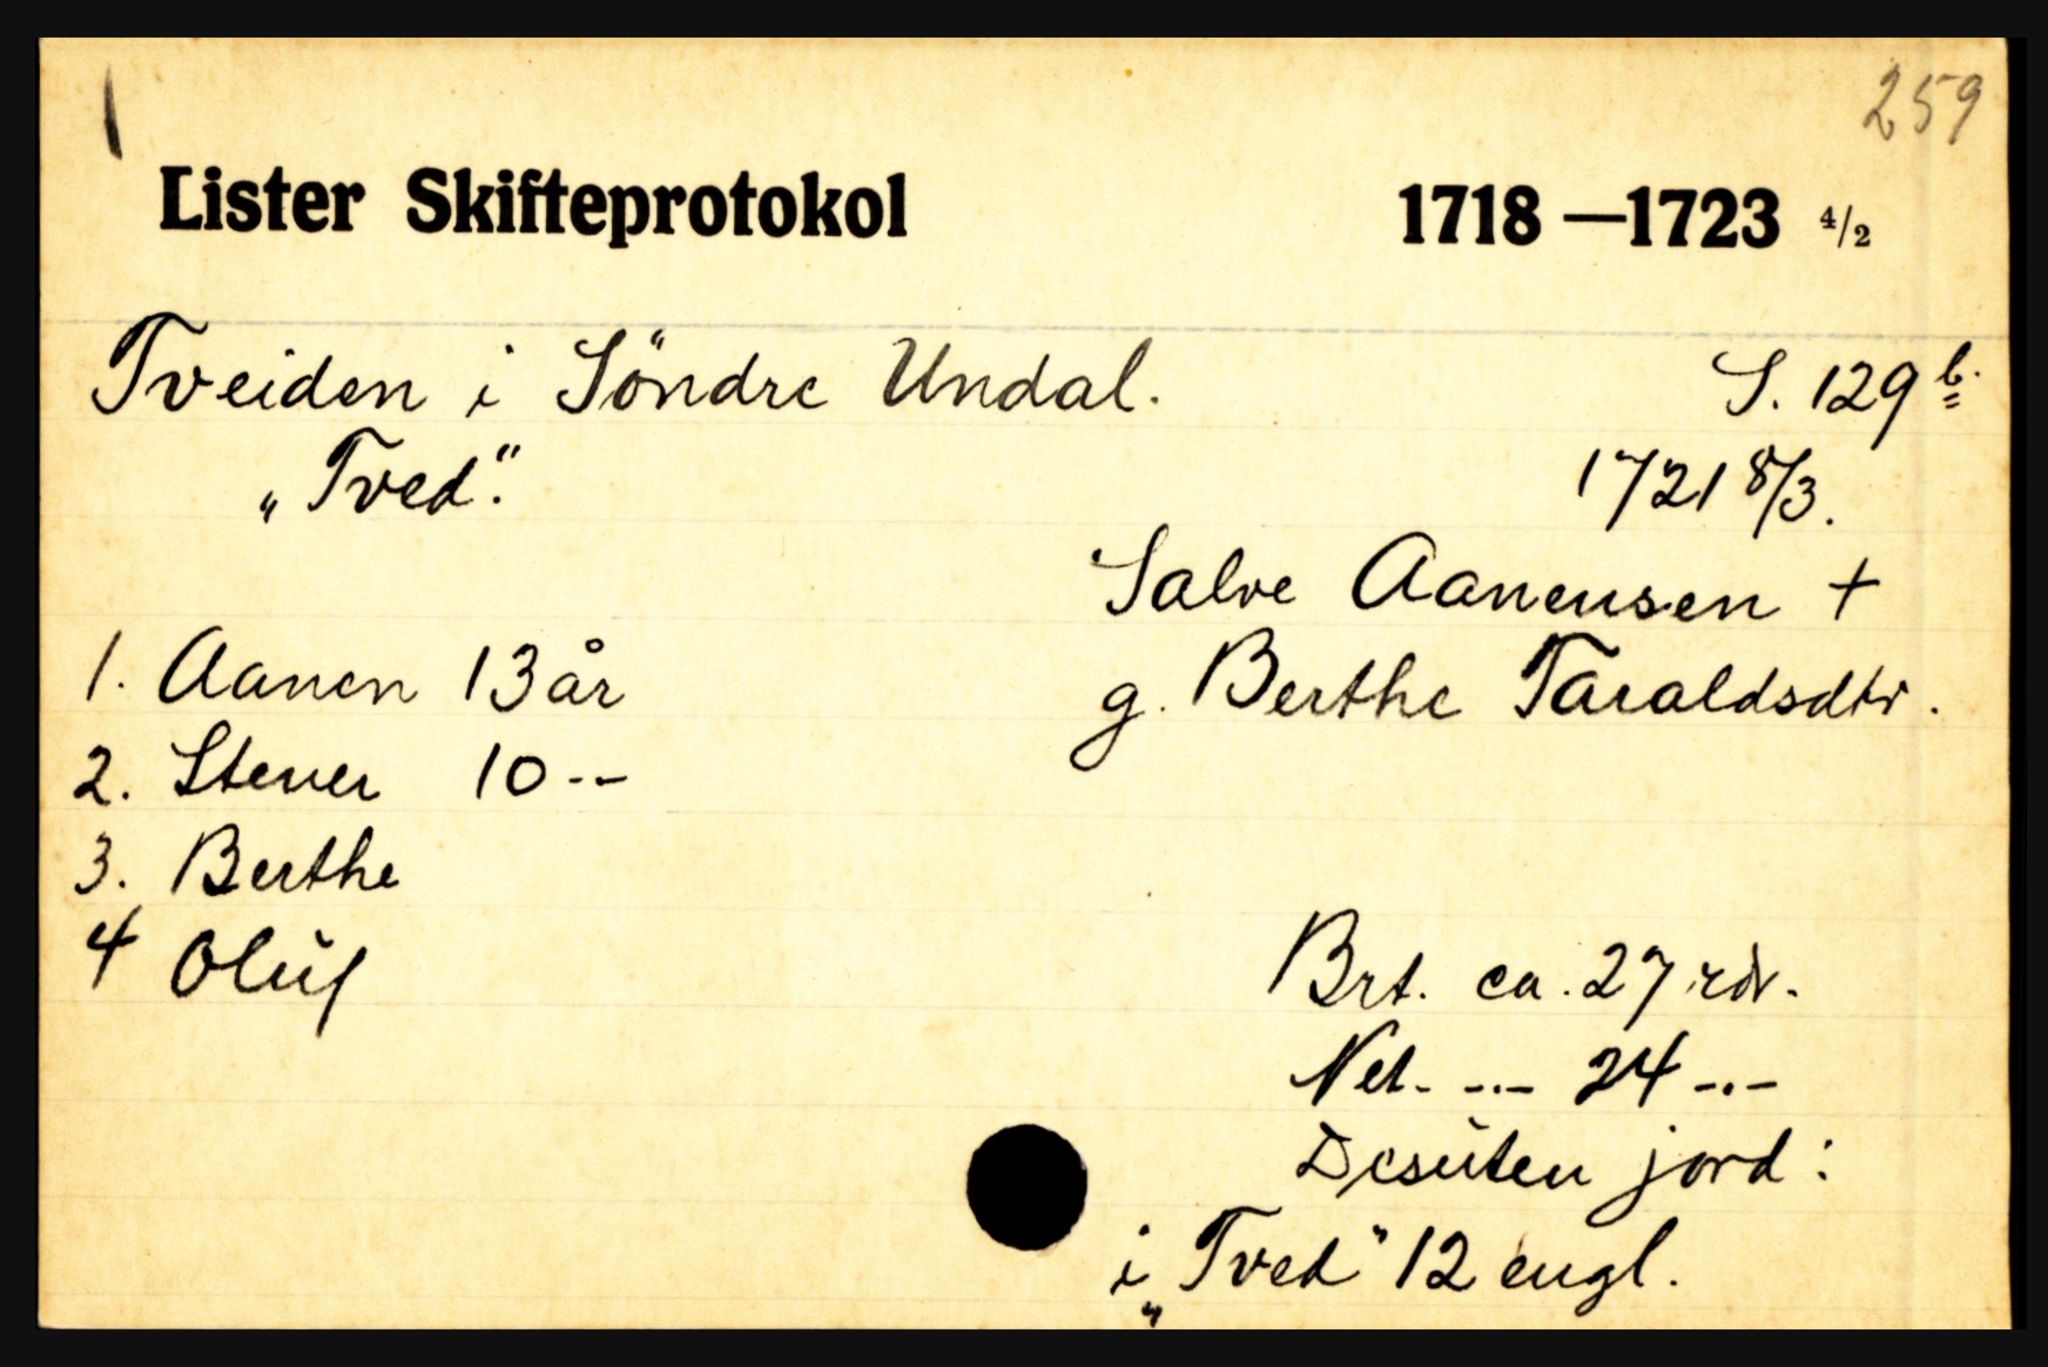 259
Lister Skifteprotokol 1718—1723 4/2
Tveiden i Söndre Undal. S. 129 b.
„Tved". 1721 8/3.
Salve Aanensen +
1. Aanen 13 år g. Berthe Taraldsdtr.
2. Stener 10 --
3. Berthe
4 Oluf Brt. ca. 27 rdr.
Net. -..- 24 -.-
Desuten jord:
i „Tved" 12 engl.